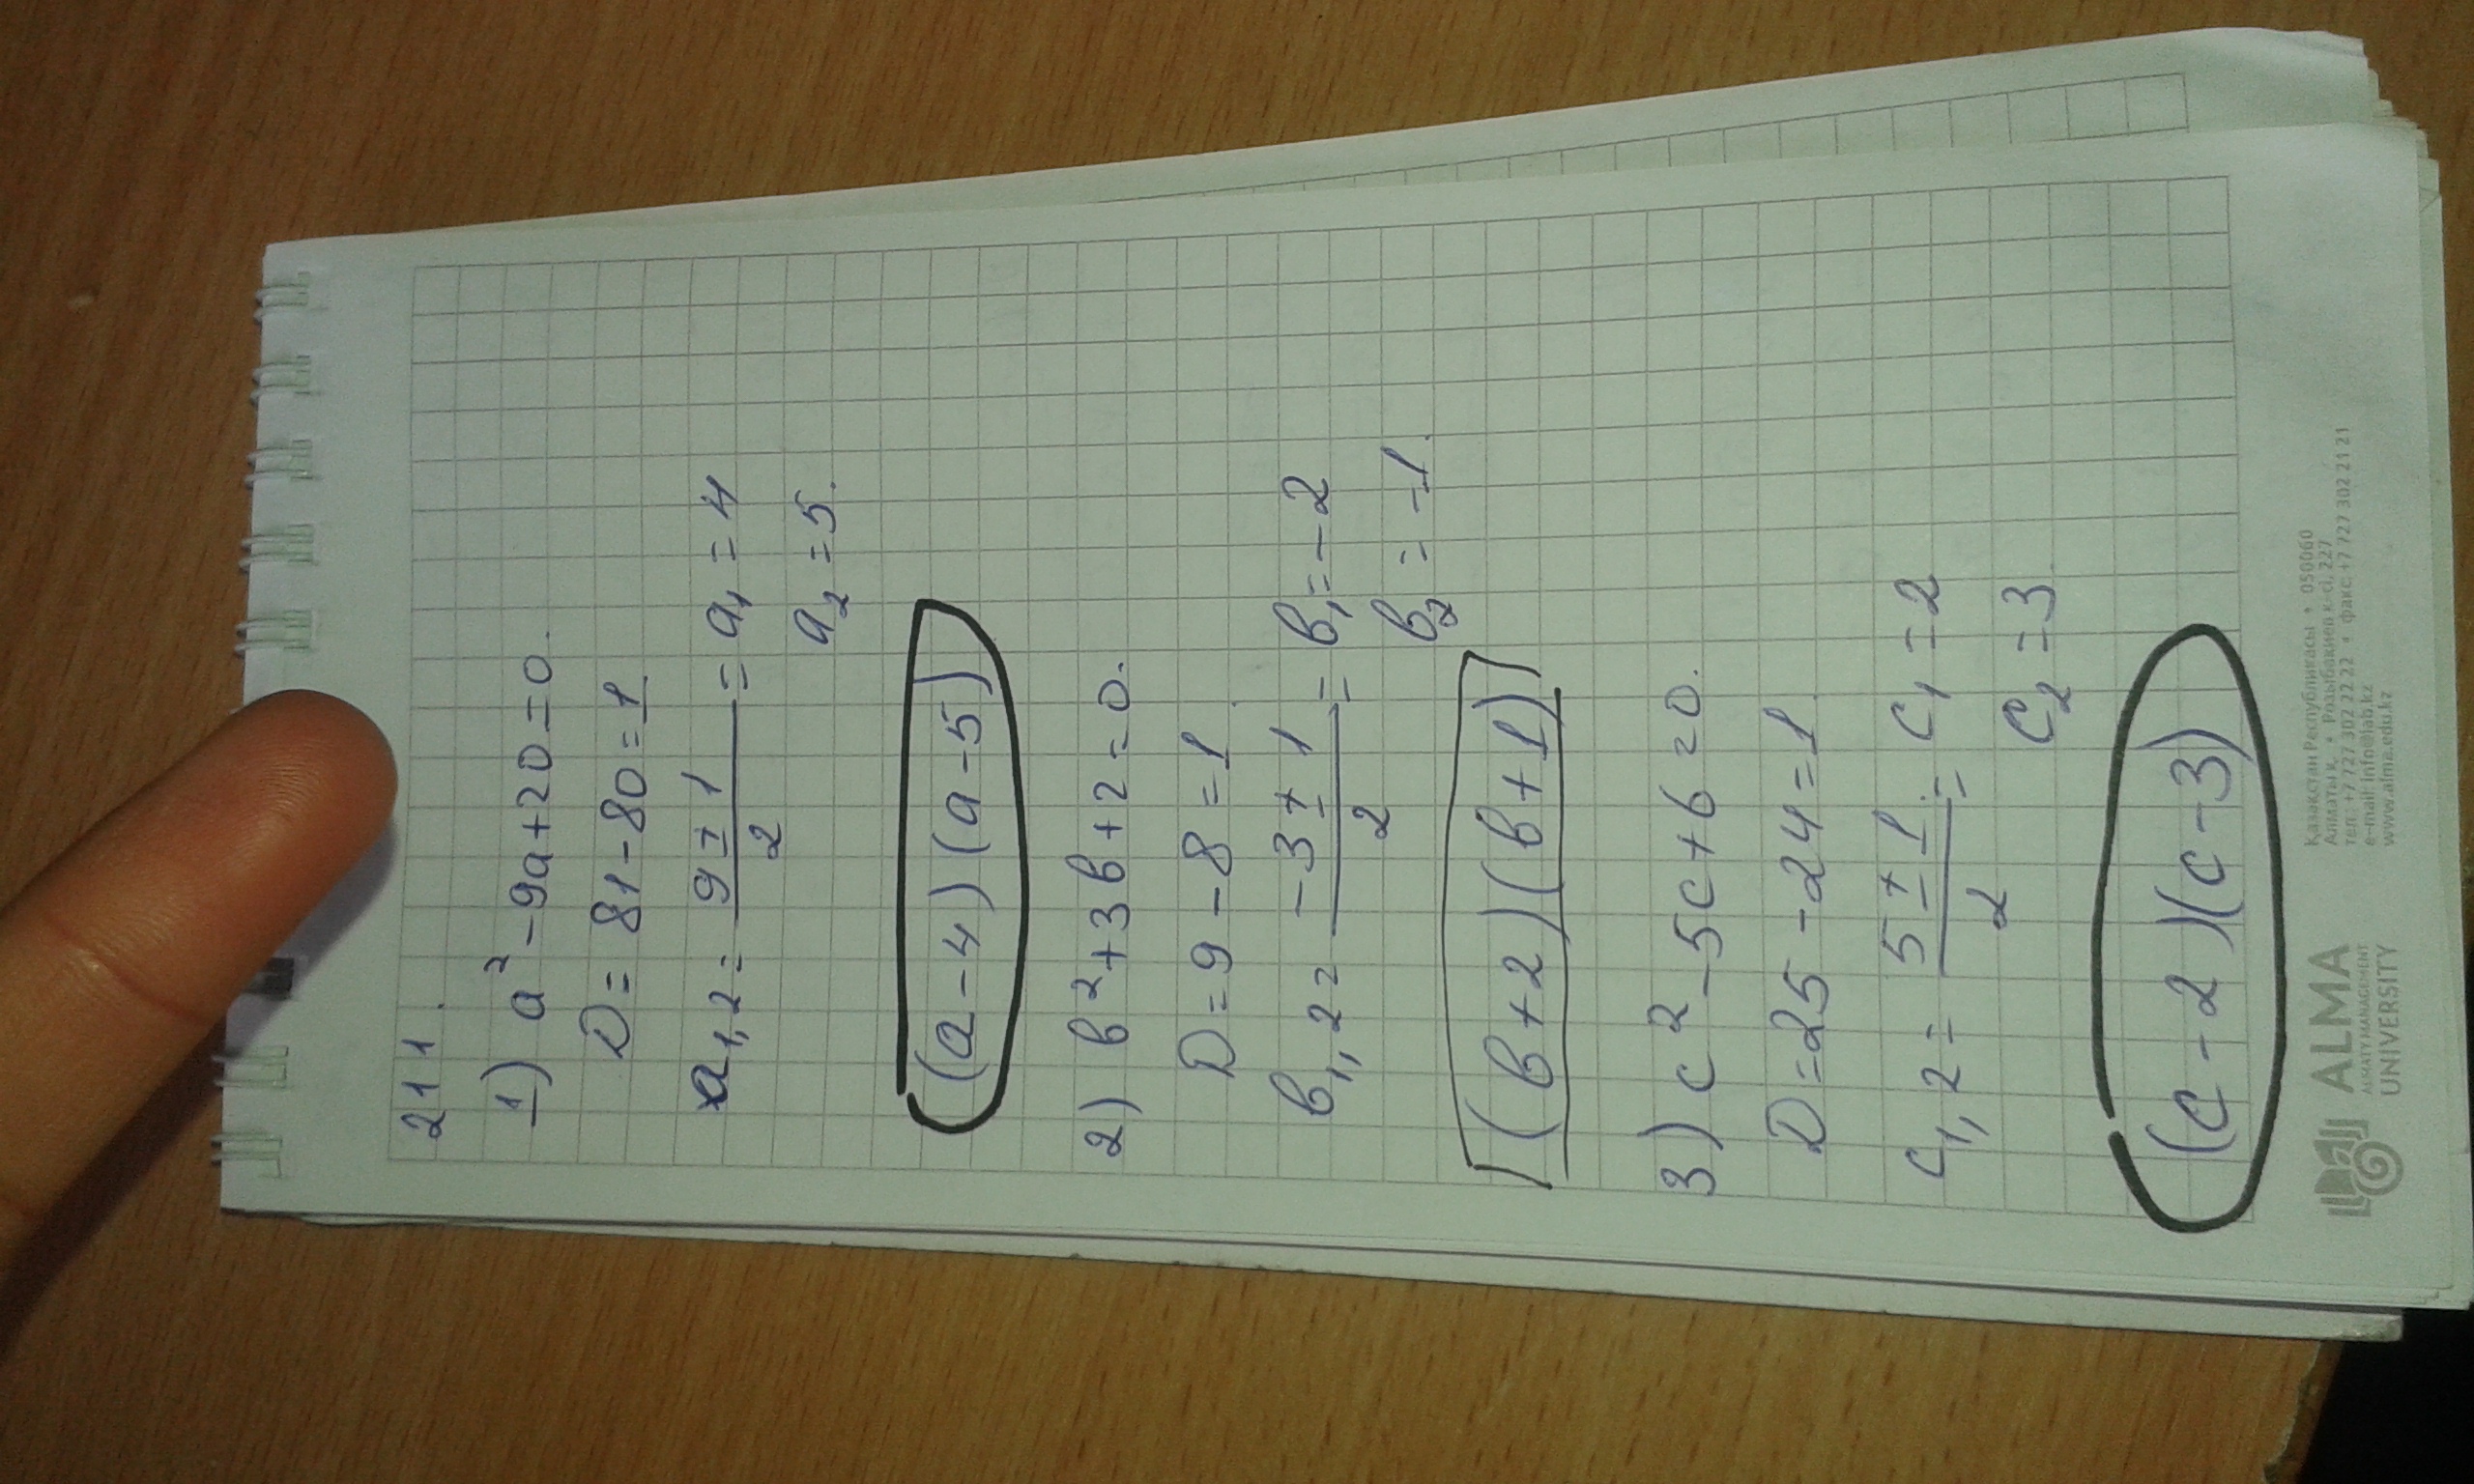 211.
1) a² - 9a + 20 = 0.
D = 81 - 80 = 1
a₁,₂ = (9 ± 1)/2 = a₁ = 4
a₂ = 5.
(a - 4)(a - 5)
2) b² + 3b + 2 = 0.
D = 9 - 8 = 1.
b₁,₂ = (-3 ± 1)/2 = b₁ = -2
b₂ = -1.
(b + 2)(b + 1)
3) c² - 5c + 6 = 0.
D = 25 - 24 = 1.
c₁,₂ = (5 ± 1)/2 = c₁ = 2
c₂ = 3.
(c - 2)(c - 3)
ALMA
ALMATY MANAGEMENT
UNIVERSITY
Қазақстан Республикасы • 050060
Алматы қ. • Розыбакиев к-сі, 227
тел.: +7 727 302 22 22 • факс: +7 727 302 21 21
e-mail: info@iab.kz
www.alma.edu.kz